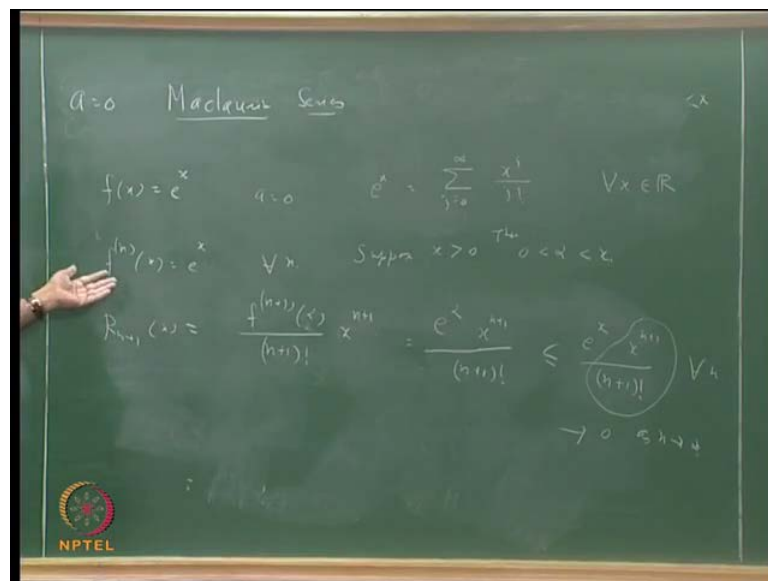 a=0 Maclaurin Series <x
f(x) = e^x a=0 e^x = ∑_{j=0}^{∞} x^j/j! ∀x ∈ ℝ
f^(n)(x) = e^x ∀ n. Suppose x > 0 Then 0 < α < x.
R_{n+1}(x) = f^(n+1)(α)/(n+1)! x^{n+1} = e^α x^{n+1}/(n+1)! ≤ e^x x^{n+1}/(n+1)! ∀ n
→ 0 as n→
NPTEL